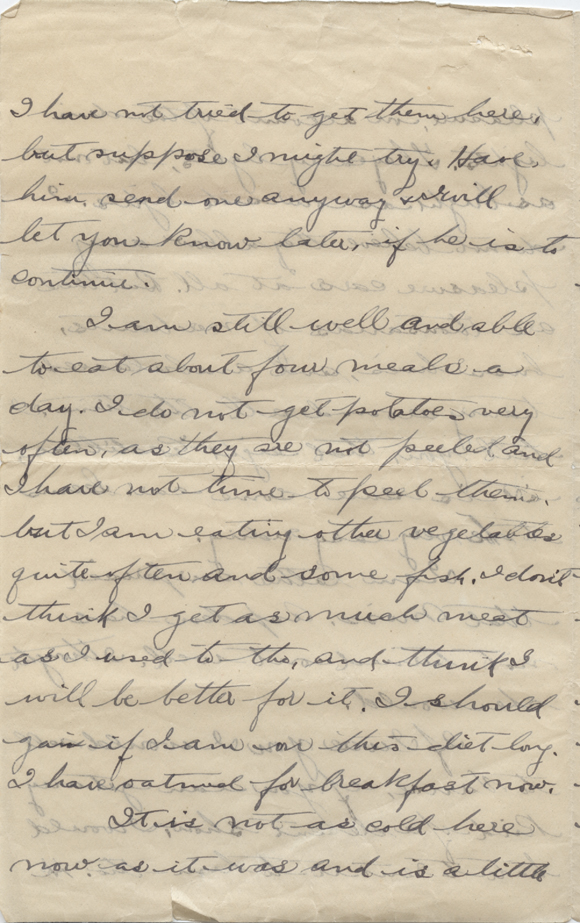 I have not tried to get them here,
but suppose I might try. Have
him send one anyway & I will
let you know later, if he is to
continue.
I am still well and able
to eat about four meals a
day. I do not get potatoes very
often, as they are not peeled and
I have not time to peel them.
but I am eating other vegetables
quite often and some fish. I don't
think I get as much meat
as I used to tho, and think I
will be better for it. I should
gain if I am on this diet long.
I have oatmeal for breakfast now.
It is not as cold here
now as it was and is a little